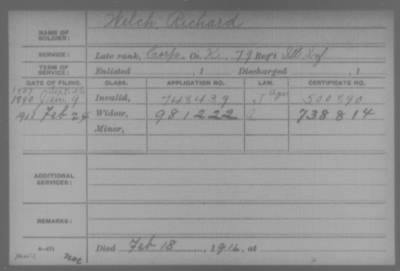 Welch, Richard
NAME OF SOLDIER:
SERVICE: Late rank, Corp. Co. K, 79 Reg't Ill. Inf.
TERM OF SERVICE: Enlisted , 1 Discharged , 1
DATE OF FILING. CLASS. APPLICATION NO. LAW. CERTIFICATE NO.
1890 Invalid, 748439 500590
Feb 24 Widow, 981222 738814
Minor,
ADDITIONAL SERVICES:
REMARKS:
Died Feb 18, 1916, at